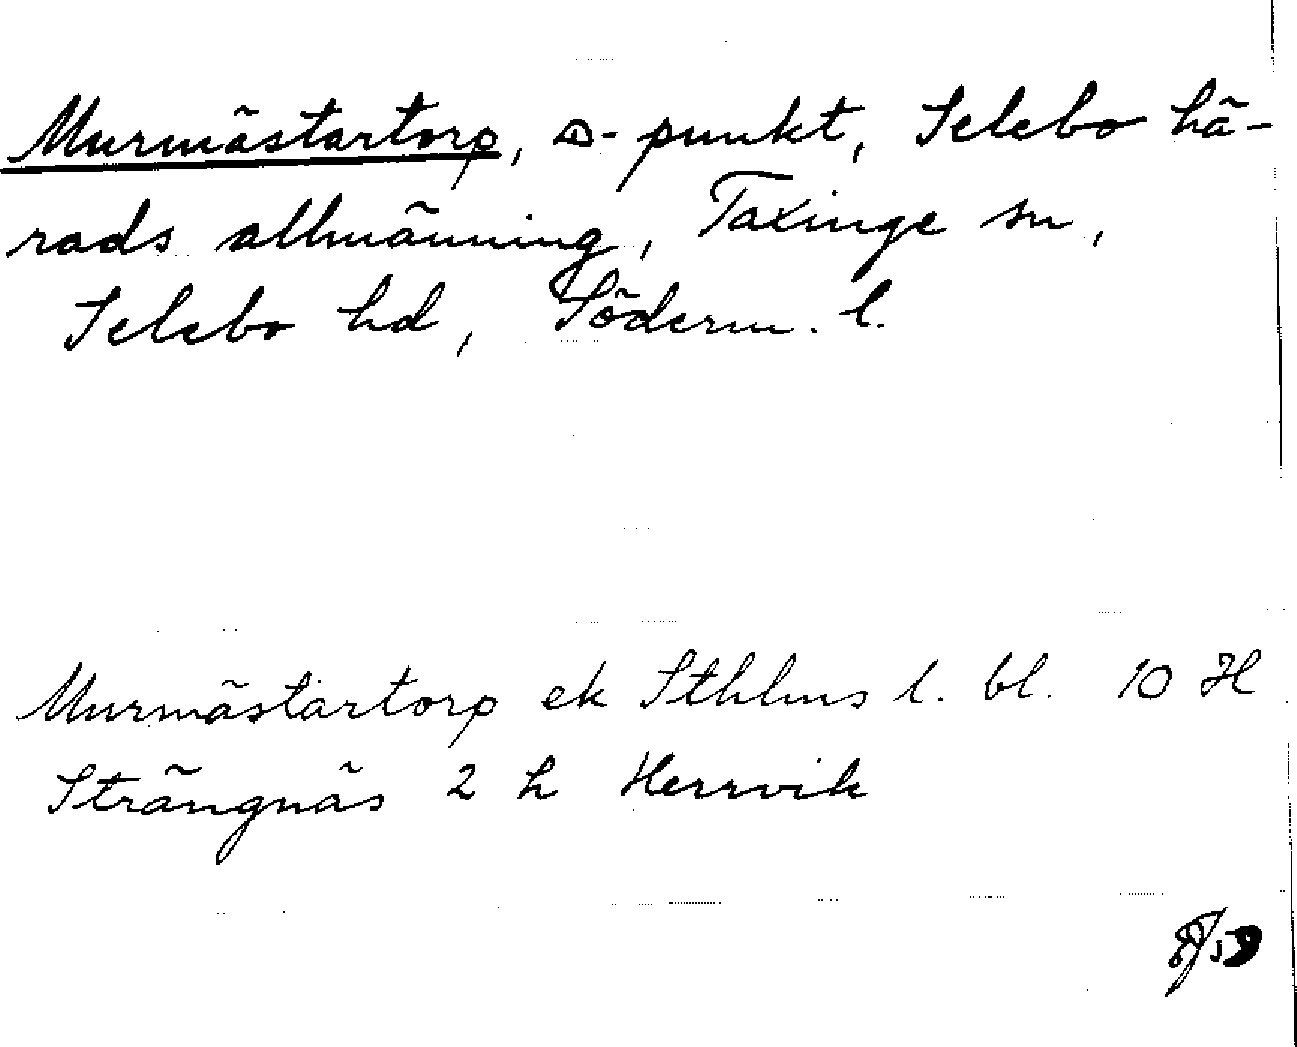 Murmästartorp, △-punkt, Selebo hä-
rads allmänning, Taxinge sn,
Selebo hd, Söderm. l.
Murmästartorp ek Sthlms l. bl. 10 H
Strängnäs 2 h Herrvik